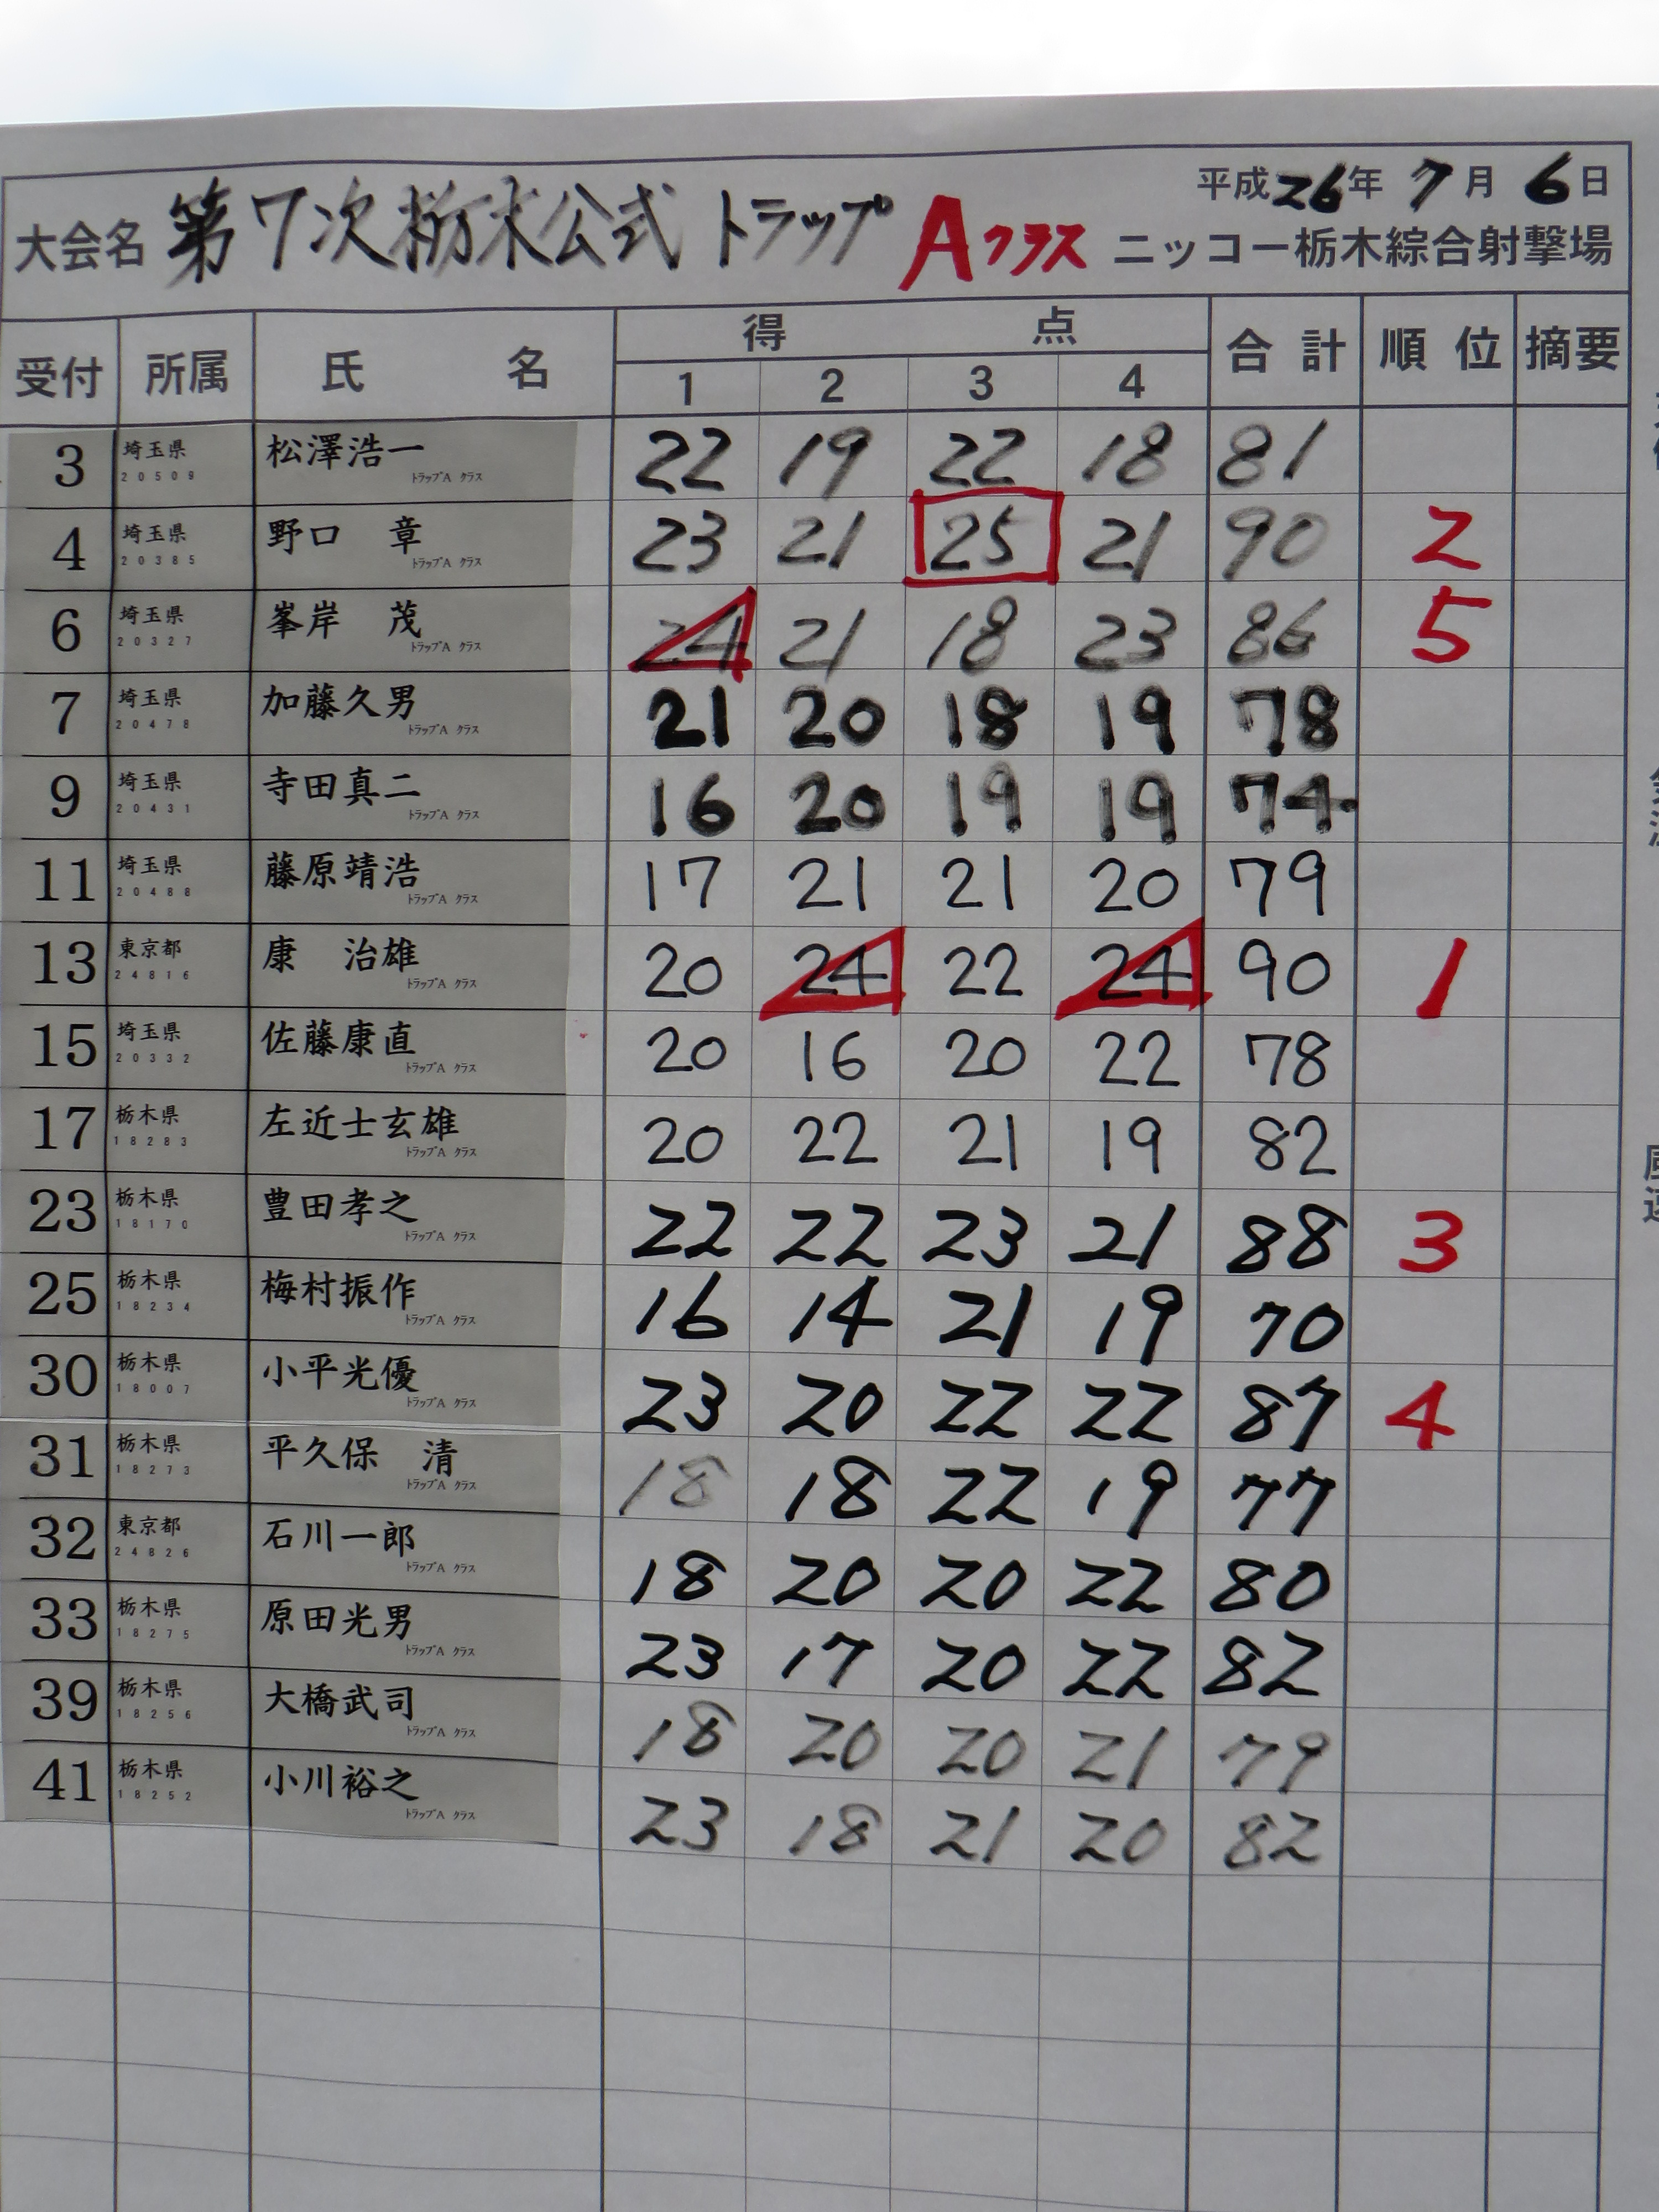 平成26年 7月 6日
大会名 第7次栃木公式 トラップ Aクラス ニッコー栃木綜合射撃場
受付 所属 氏 名 得 点 合計 順位 摘要
1 2 3 4
3 埼玉県 20509 松澤浩一 トラップA クラス 22 19 22 18 81
4 埼玉県 20385 野口 章 トラップA クラス 23 21 25 21 90 2
6 埼玉県 20327 峯岸 茂 トラップA クラス 24 21 18 23 86 5
7 埼玉県 20478 加藤久男 トラップA クラス 21 20 18 19 78
9 埼玉県 20431 寺田真二 トラップA クラス 16 20 19 19 74
11 埼玉県 20488 藤原靖浩 トラップA クラス 17 21 21 20 79
13 東京都 24816 康 治雄 トラップA クラス 20 24 22 24 90 1
15 埼玉県 20332 佐藤康直 トラップA クラス 20 16 20 22 78
17 栃木県 18283 左近士玄雄 トラップA クラス 20 22 21 19 82
23 栃木県 18170 豊田孝之 トラップA クラス 22 22 23 21 88 3
25 栃木県 18234 梅村振作 トラップA クラス 16 14 21 19 70
30 栃木県 18007 小平光優 トラップA クラス 23 20 22 22 87 4
31 栃木県 18273 平久保 清 トラップA クラス 18 18 22 19 77
32 東京都 24826 石川一郎 トラップA クラス 18 20 20 22 80
33 栃木県 18275 原田光男 トラップA クラス 23 17 20 22 82
39 栃木県 18256 大橋武司 トラップA クラス 18 20 20 21 79
41 栃木県 18252 小川裕之 トラップA クラス 23 18 21 20 82